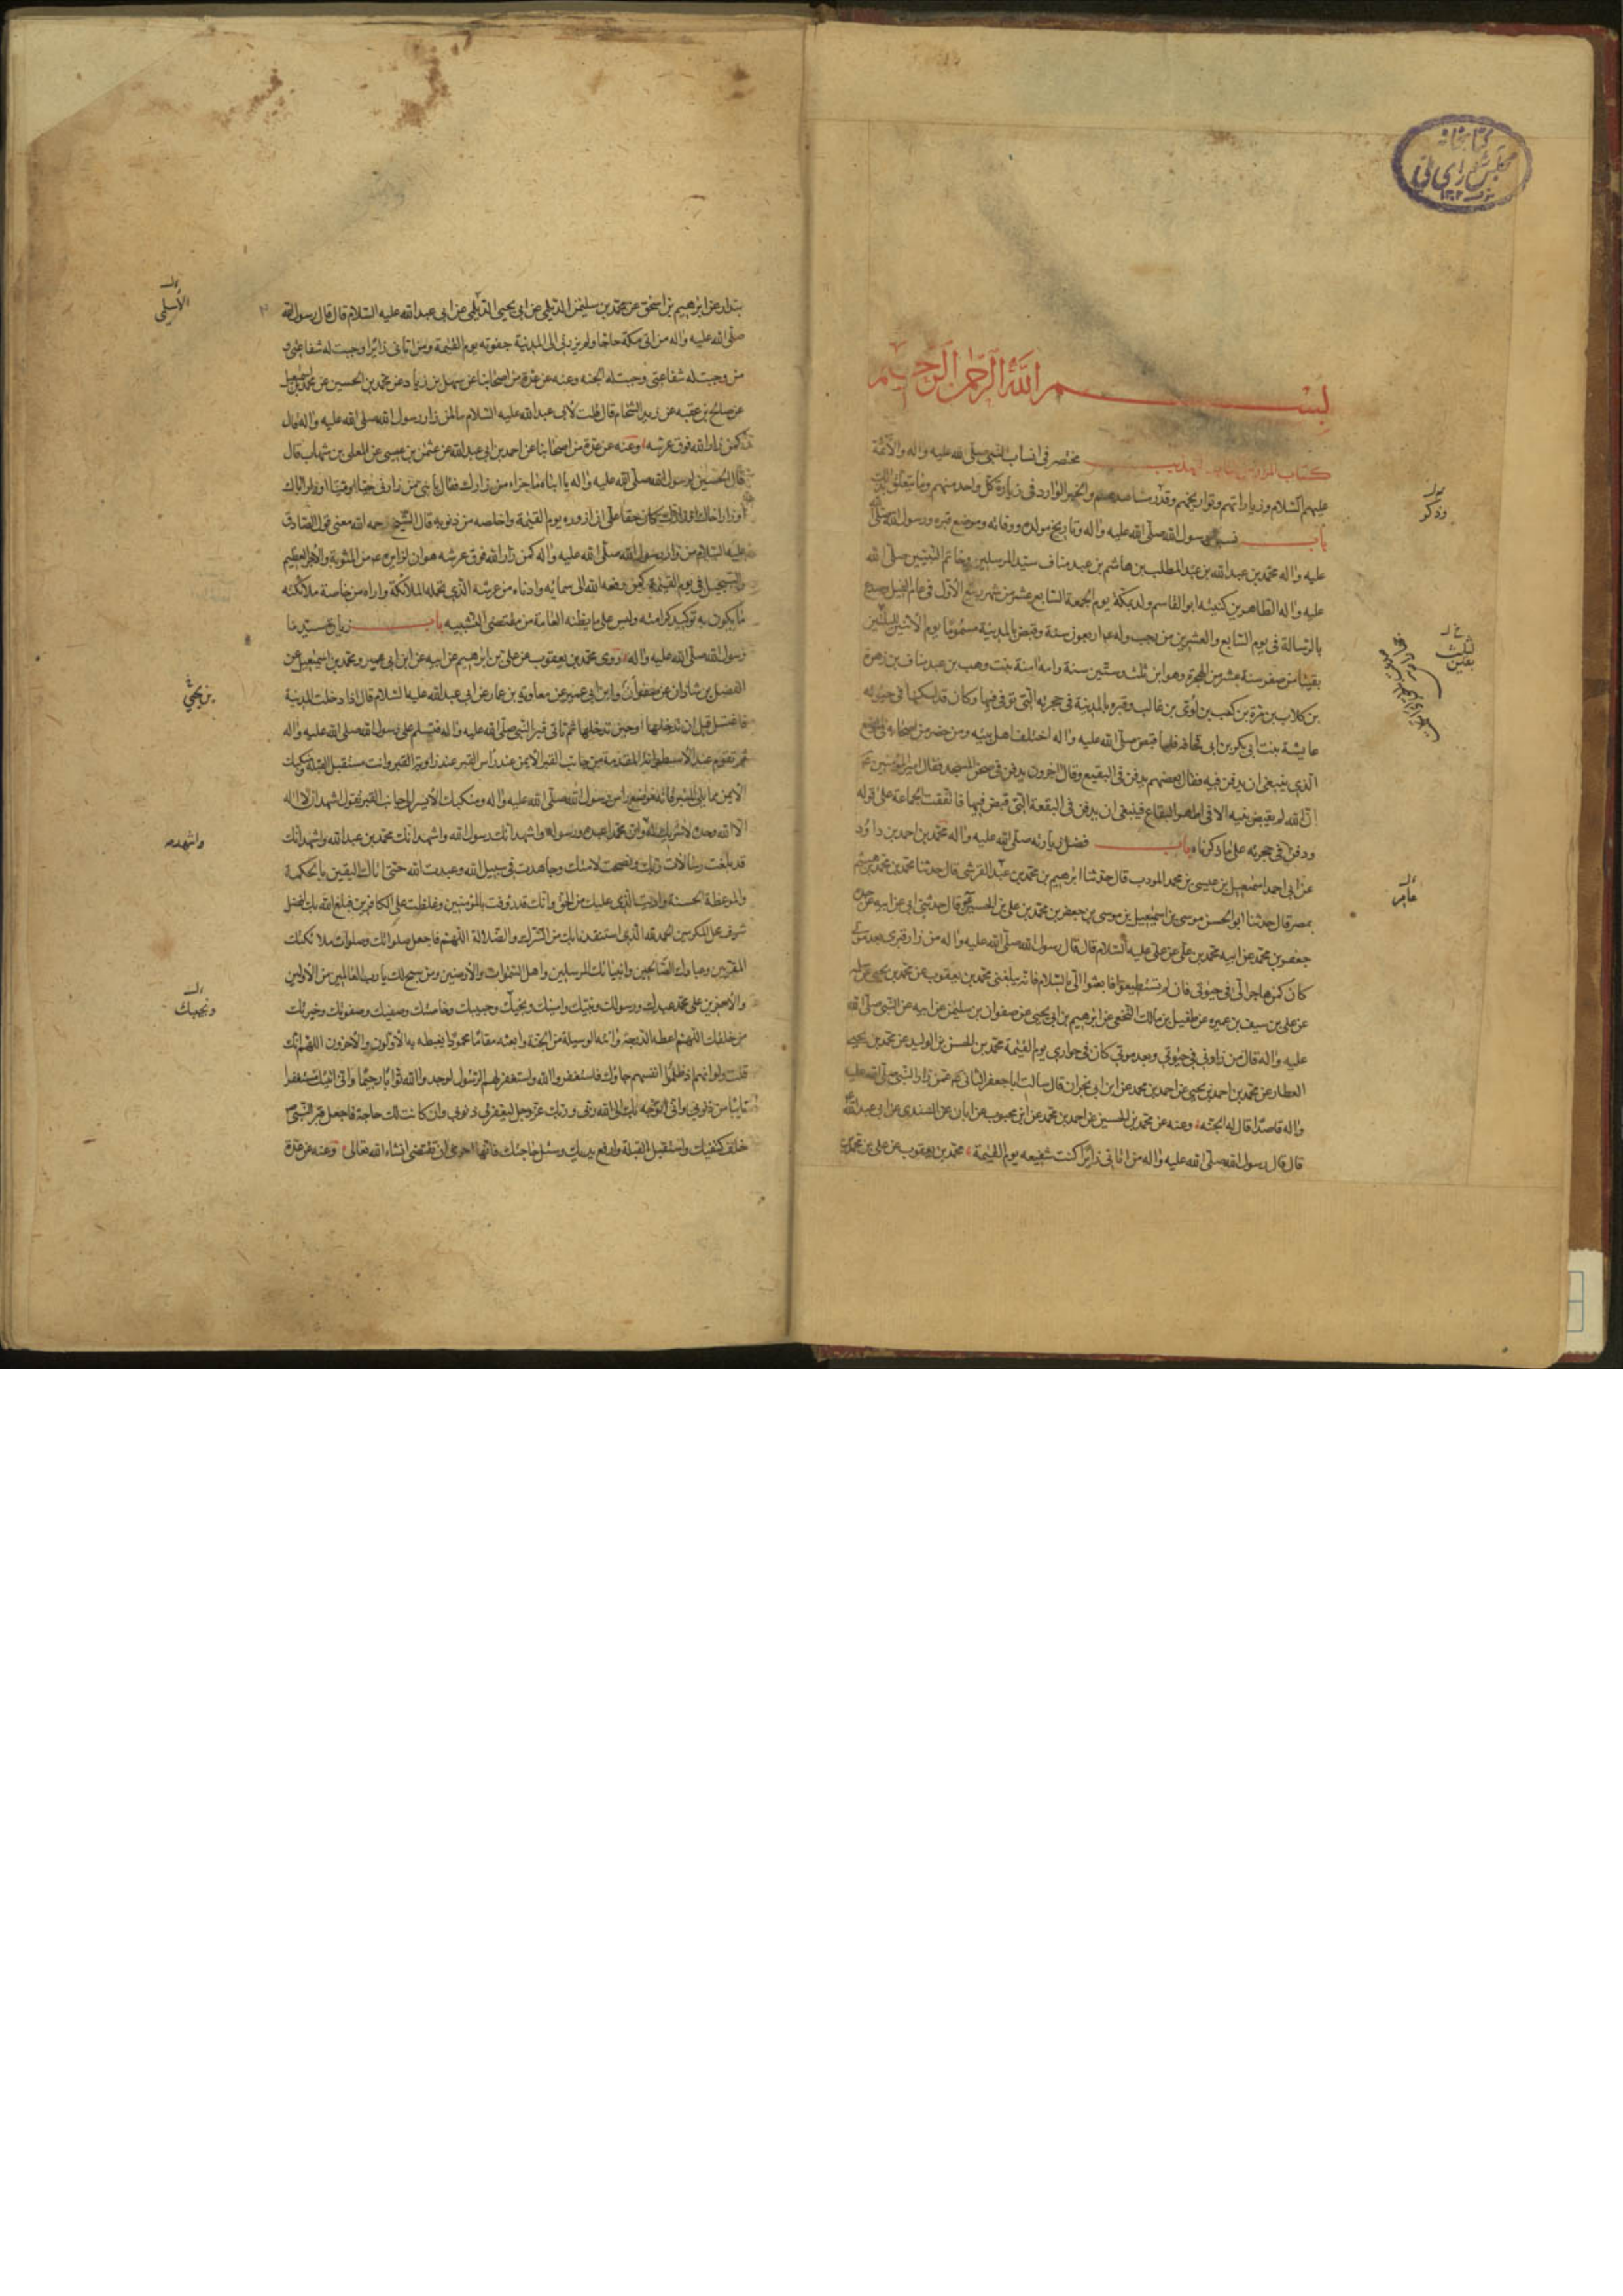 كتابخانه
مجلس شورای ملی
بسم الله الرحمن الرحيم
كتاب المزار من كتاب تهذيب مختصر فى انساب النبى صلى الله عليه واله والائمة
عليهم السلام وزياراتهم وتواريخهم وقدر مشاهدهم والخبر الوارد فى زيارة كل واحد منهم وما يتعلق بذلك
باب نسب رسول الله صلى الله عليه واله وتاريخ مولده ووفاته وموضع قبره ورسول الله صلى الله
عليه واله محمد بن عبدالله بن عبدالمطلب بن هاشم بن عبد مناف سيد المرسلين وخاتم النبيين صلى الله
عليه واله الطاهرين كنيته ابوالقاسم ولد بمكة يوم الجمعة السابع عشر من شهر ربيع الاول فى عام الفيل وصدع
بالرسالة فى يوم السابع والعشرين من رجب وله اربعون سنة وقبض بالمدينة مسموما يوم الاثنين لليلتين
بقيتا من صفر سنة عشر من الهجرة وهو ابن ثلث وستين سنة وامه امنة بنت وهب بن عبد مناف بن زهرة
بن كلاب بن مرة بن كعب بن لوى بن غالب وقبره بالمدينة فى حجرته التى توفى فيها وكان قد اسكنها فى حيوته
عايشة بنت ابى بكر بن ابى قحافة فلما قبض صلى الله عليه واله اختلف اهل بيته ومن حضر من اصحابه فى الموضع
الذى ينبغى ان يدفن فيه فقال بعضهم يدفن فى البقيع وقال اخرون يدفن فى صحن المسجد فقال امير المؤمنين
ان الله لم يقبض نبيه الا فى اطهر البقاع فينبغى ان يدفن فى البقعة التى قبض فيها فاتفقت الجماعة على قوله
ودفن فى حجرته على ما ذكرناه باب فضل زيارته صلى الله عليه واله محمد بن احمد بن داود
عن ابى احمد اسمعيل بن عيسى بن محمد المودب قال حدثنا ابرهيم بن محمد بن عبدالله القرشى قال حدثنا محمد بن محمد بن هيثم
بمصر قال حدثنا ابوالحسن موسى بن اسمعيل بن موسى بن جعفر بن محمد بن على بن الحسين قال حدثنى ابى عن ابيه عن جده
جعفر بن محمد عن ابيه محمد بن على عن على عليه السلام قال قال رسول الله صلى الله عليه واله من زار قبرى بعد موتى
كان كمن هاجر الى فى حيوتى فان لم تستطيعوا فابعثوا الى بالسلام فانه يبلغنى محمد بن يعقوب عن محمد بن يحيى عن سلمه
عن على بن سيف بن عميره عن طفيل بن مالك النخعى عن ابرهيم بن ابى يحيى عن صفوان بن سليمن عن ابيه عن النبى صلى الله
عليه واله قال من زارنى فى حيوتى وبعد موتى كان فى جوارى يوم القيمة محمد بن الحسن بن الوليد عن محمد بن يحيى
العطار عن محمد بن احمد بن يحيى عن احمد بن محمد عن ابن ابى نجران قال سالت ابا جعفر الثانى عمن زار النبى صلى الله عليه
واله قاصدا قال له الجنة وعنه عن محمد بن الحسين عن احمد بن محمد عن ابن محبوب عن ابان عن السندى عن ابى عبدالله
قال قال رسول الله صلى الله عليه واله من اتانى زائرا كنت شفيعه يوم القيمة محمد بن يعقوب عن على بن محمد بن
وذكر
عامر
بندار عن ابرهيم بن اسحق عن محمد بن سليمن الديلمى عن ابى يحيى الديلمى عن ابى عبدالله عليه السلام قال قال رسول الله
صلى الله عليه واله من اتى مكة حاجا ولم يزرنى الى المدينة جفوته يوم القيمة ومن اتانى زائرا وجبت له شفاعتى و
من وجبت له شفاعتى وجبت له الجنه وعنه عن عدة من اصحابنا عن سهل بن زياد عن محمد بن الحسين عن محمد بن اسمعيل
عن صالح بن عقبه عن زيد الشحام قال قلت لابى عبدالله عليه السلام ما لمن زار رسول الله صلى الله عليه واله قال
كمن زار الله فوق عرشه وعنه عن عدة من اصحابنا عن احمد بن ابى عبدالله عن عثمن بن عيسى عن المعلى بن شهاب قال
قال الحسين لرسول الله صلى الله عليه واله يا ابتاه ما جزاء من زارك فقال يا بنى من زارنى حيا او ميتا او زار اباك
او زار اخاك او زارك كان حقا على ان ازوره يوم القيمة واخلصه من ذنوبه قال الشيخ رحمه الله معنى قول الصادق
عليه السلام من زار رسول الله صلى الله عليه واله كمن زار الله فوق عرشه هو ان لزايره من المثوبة والاجر العظيم
والتبجيل فى يوم القيمة كمن رفعه الله الى سمائه وادناه من عرشه الذى تحمله الملائكة واراه من خاصة ملائكته
ما يكون به توكيد كرامته وليس على ما يظنه العامة من مقتضى التشبيه باب زيارة سيدنا
رسول الله صلى الله عليه واله روى محمد بن يعقوب عن على بن ابرهيم عن ابيه عن ابن ابى عمير ومحمد بن اسمعيل عن
الفضل بن شاذان عن صفوان وابن ابى عمير عن معاوية بن عمار عن ابى عبدالله عليه السلام قال اذا دخلت المدينة
فاغتسل قبل ان تدخلها او حين تدخلها ثم تاتى قبر النبى صلى الله عليه واله فتسلم على رسول الله صلى الله عليه واله
ثم تقوم عند الاسطوانة المقدمة من جانب القبر الايمن عند راس القبر عند زاوية القبر وانت مستقبل القبلة ومنكبك
الايمن مما يلى المنبر فانه موضع راس رسول الله صلى الله عليه واله ومنكبك الايسر الى جانب القبر تقول اشهد ان لا اله
الا الله وحده لا شريك له وان محمدا عبده ورسوله واشهد انك رسول الله واشهد انك محمد بن عبدالله واشهد انك
قد بلغت رسالات ربك ونصحت لامتك وجاهدت فى سبيل الله وعبدت الله حتى اتاك اليقين بالحكمة
والموعظة الحسنة واديت الذى عليك من الحق وانك قد رؤفت بالمؤمنين وغلظت على الكافرين فبلغ الله بك افضل
شرف محل المكرمين الحمد لله الذى استنقذنا بك من الشرك والضلالة اللهم فاجعل صلواتك وصلوات ملائكتك
المقربين وعبادك الصالحين وانبيائك المرسلين واهل السموات والارضين ومن سبح لك يا رب العالمين من الاولين
والاخرين على محمد عبدك ورسولك ونبيك وامينك ونجيك وحبيبك وخاصتك وصفيك وصفوتك وخيرتك
من خلقك اللهم اعطه الدرجة واته الوسيلة من الجنة وابعثه مقاما محمودا يغبطه به الاولون والاخرون اللهم انك
قلت ولو انهم اذ ظلموا انفسهم جاؤك فاستغفروا الله واستغفر لهم الرسول لوجدوا الله توابا رحيما وانى اتيتك مستغفرا
تايبا من ذنوبى وانى اتوجه بك الى الله ربى وربك عز وجل ليغفر لى ذنوبى وان كانت لك حاجة فاجعل قبر النبى
خلف كتفيك واستقبل القبلة وارفع يديك وسل حاجتك فانها احرى ان تقضى انشاء الله تعالى وعنه عن عدة
الاسلمى
بن يحيى
واشهد
ونجيبك